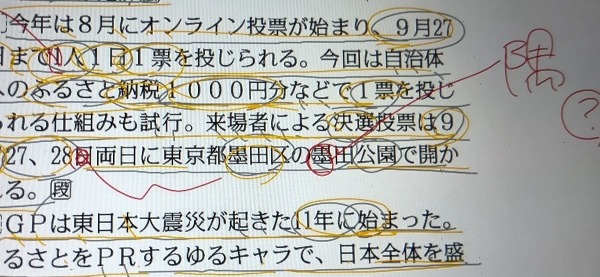 今年は８月にオンライン投票が始まり、９月27
日まで1人１日１票を投じられる。今回は自治体
へのふるさと納税１０００円分などで１票を投じ
られる仕組みも試行。来場者による決選投票は９
27、28日両日に東京都墨田区の墨田公園で開か
れる。段
ＧＰは東日本大震災が起きた11年に始まった。
るさとをＰＲするゆるキャラで、日本全体を盛
隅
？